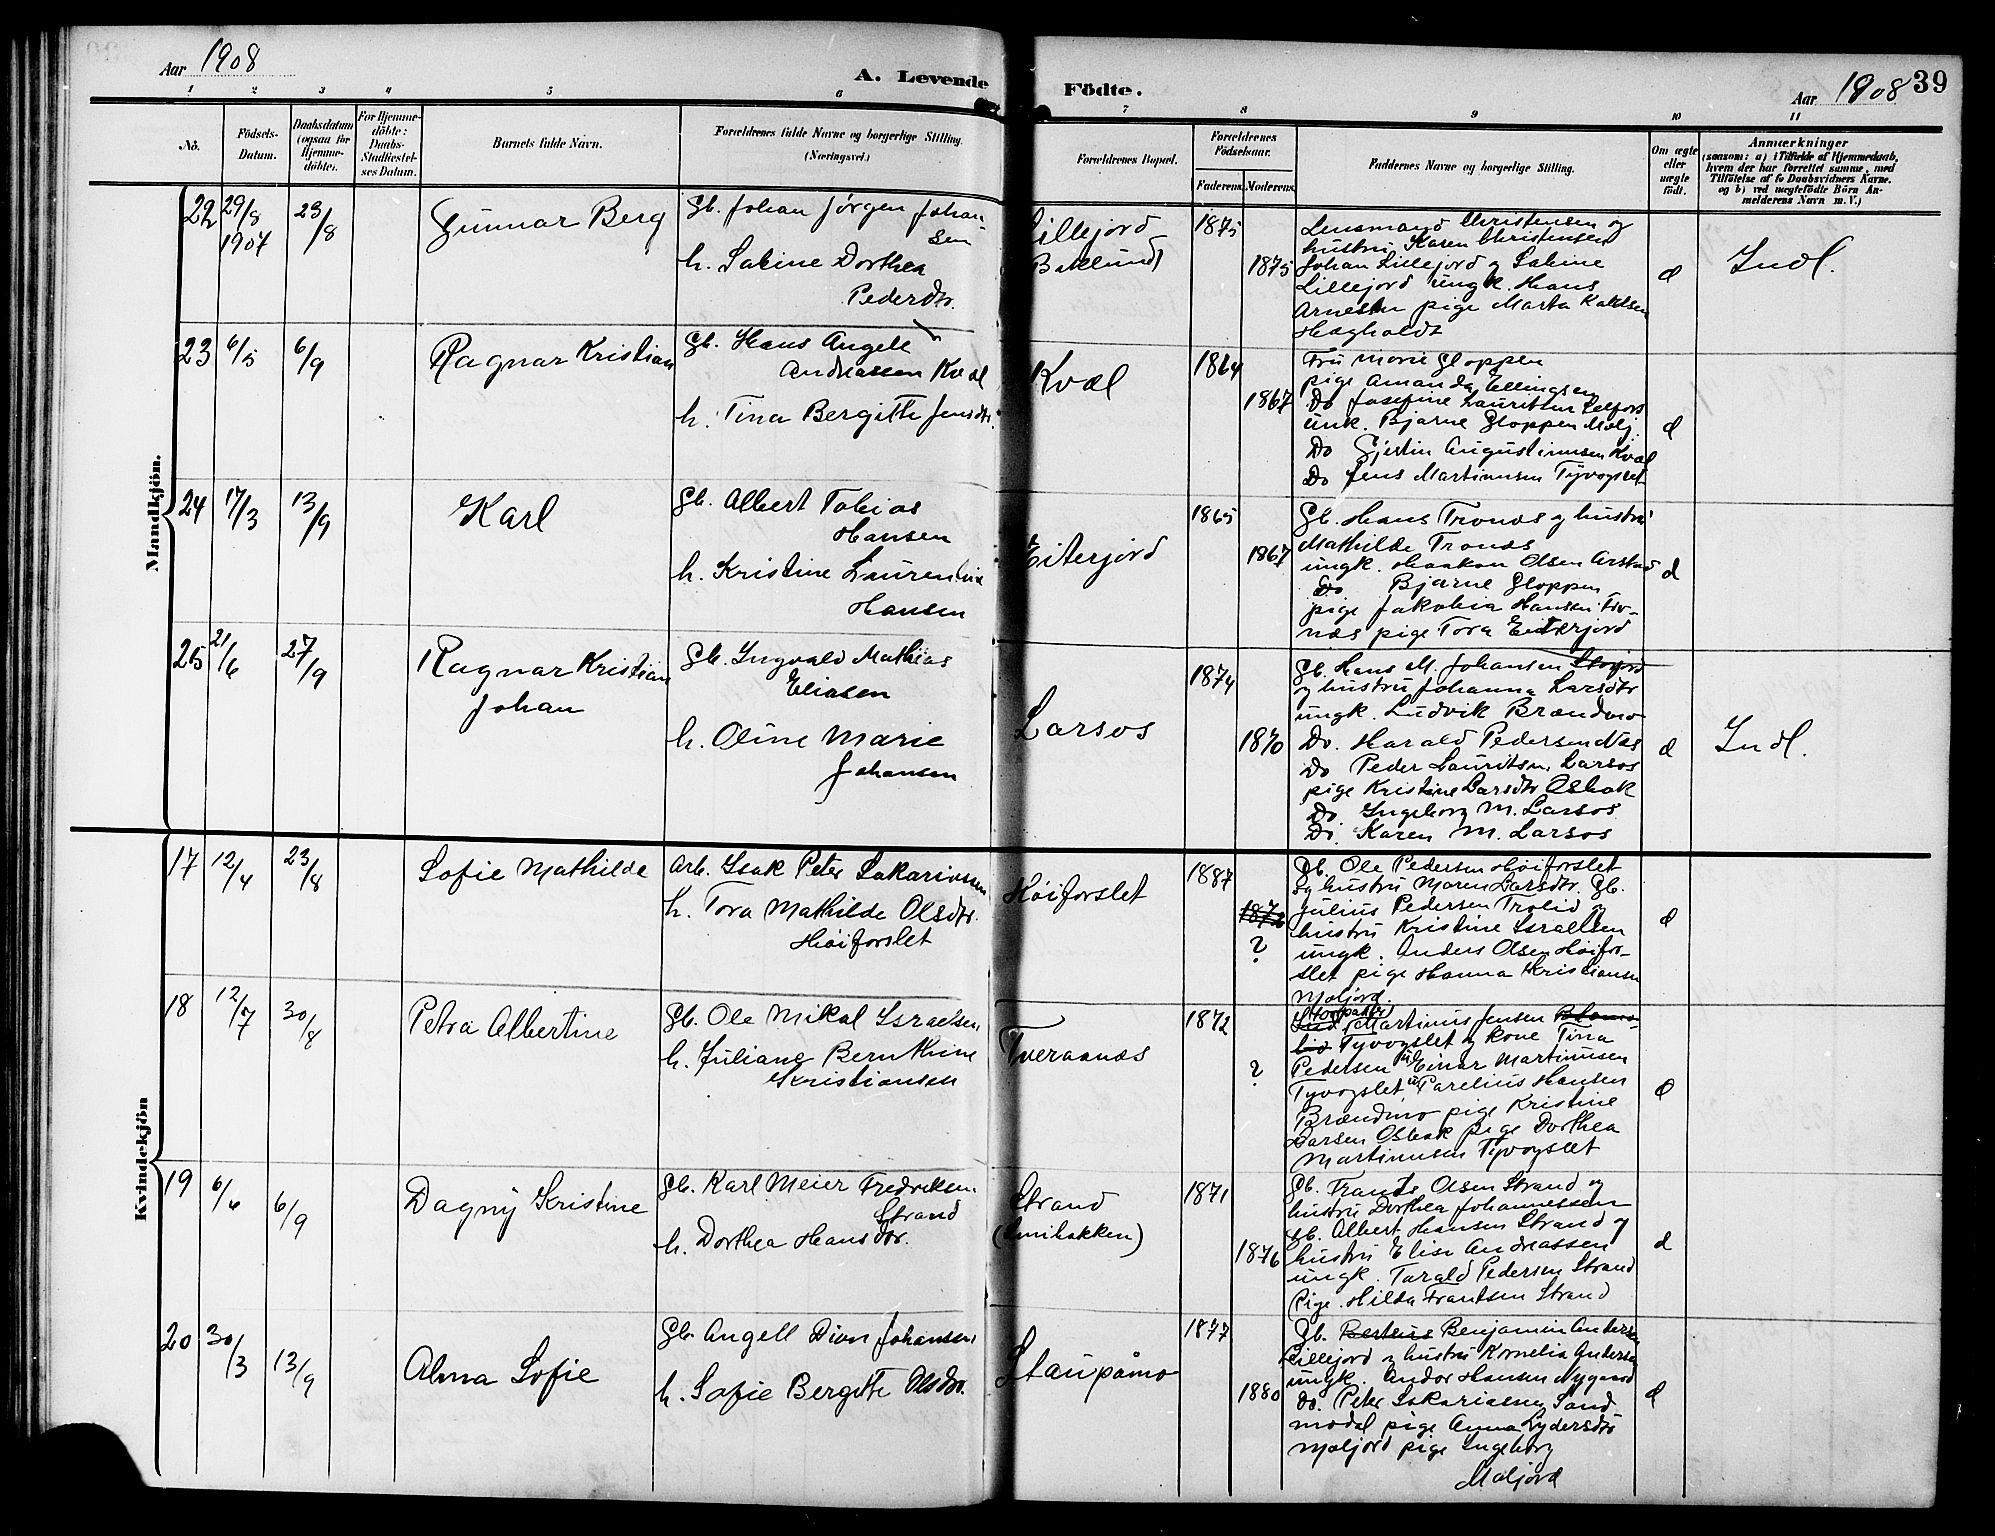 Aar 1908
A. Levende
Födte.
Aar 1908
39
1 2 3 4 5 6 7 8 9 10 11
No.
Födsels-
Datum.
Daabsdatum
(ogsaa for
Hjemme-
döbte).
For Hjemme-
döbte:
Daabs-
Stadfæstel-
ses Datum.
Barnets fulde Navn.
Forældrenes fulde Navne og borgerlige Stilling.
(Næringsvei.)
Forældrenes Bopæl.
Forældrenes
Födselsaar.
Faderens. Moderens.
Faddernes Navne og borgerlige Stilling.
Om ægte
eller
uægte
födt.
Anmærkninger
(saasom: a) i Tilfælde af Hjemmedaab,
hvem der har forrettet samme, med
Tilföielse af to Daabsvidners Navne.
og b) ved uægtefödte Börn An-
melderens Navn m. V.)
Mandkjön.
22 29/8 1907 23/8
Gunnar Berg
Gb. Johan Jørgen Johan
sen
h. Sabine Dorthea
Pedersdtr.
Lillejord
Baklund
1875
1875
Lensmand Christensen og
hustru Karen Christensen
Johan Lillejord og Sabine
Lillejord ungk. Hans
Arnesen pige Marta Karlsen
Hægholdt
Indl.
23 6/5 6/9
Ragnar Kristian
Gb. Hans Angell
Andreassen Kvæl
h. Tina Bergitte Jensdtr.
Kvæl
1864
1867
Fru Marie Gloppen
pige Amanda Ellingsen
Do Josefine Lauritsen
unk. Bjarne Gloppen Molj.
Do Gjertin Augustinusen Kvæl
Do Jens Martinusen Tyvogslet
24 17/3 13/9
Karl
Gb. Albert Tobias
Hansen
h. Kristine Laurentine
Hansen
Eiterjord
1865
1867
Gb. Hans Tronæs og hustru
Mathilde Tronæs
ungk. Haakon Olsen Arstad
Do Bjarne Gloppen
pige Jakobia Hansen Tro-
næs pige Tora Eiterjord
25 21/6 27/9
Ragnar Kristian
Johan
Gb. Ingvald Mathias
Eliasen
h. Oline Marie
Johansen
Larsos
1874
1870
Gb. Hans M. Johansen Storjord
og hustru Johanna Larsdtr
ungk. Ludvik Brændmo
Do. Harald Pedersen Næs
Do Peder Lauritsen Larsos
pige Kristine Larsdtr Osbak
Do. Ingeborg M. Larsos
Do. Karen M. Larsos
Indl.
Kvindekjön
17 12/4 23/8
Sofie Mathilde
Arb. Isak Peter Sakariassen
h. Tora Mathilde Olsdtr.
Høiforslet
Høiforslet
1887
?
Gb. Ole Pedersen Høiforslet
og hustru Maren Larsdtr. Gb.
Julius Pedersen Trolid og
hustru Kristine Israelsen
ungk. Anders Olsen Høifor-
slet pige Hanna Kristiansen
Moljord.
18 12/7 30/8
Petra Albertine
Gb. Ole Mikal Israelsen
h. Juliane Bernthine
Kristiansen
Tveraanæs
1872
?
Martinus Jensen
Tyvogslet og kone Tina
Pedersen Einar Martinusen
Tyvogslet Parelius Hansen
Brændmo pige Kristine
Larsen Osbak pige Dorthea
Martinusen Tyvogslet
19 6/6 6/9
Dagny Kristine
Gb. Karl Meier Fredriksen
Strand
h. Dorthea Hansdtr.
Strand
1871
1876
Gb. Frants Olsen Strand og
hustru Dorthea Johannessen
Gb. Albert Hansen Strand og
hustru Elise Andreassen
ungk. Tarald Pedersen Strand
Pige Hilda Frantsen Strand
20 30/3 13/9
Alma Sofie
Gb. Angell Dion Johansen
h. Sofie Bergitte Olsdtr.
Staupåmo
1877
1880
Gb. Benjamin Andersen
Lillejord og hustru Kornelia Andersen
ungk. Andor Hansen Nygaard
Do. Peter Sakariassen Sand-
modal pige Anna Lydersdtr
Moljord pige Ingeborg
Moljord